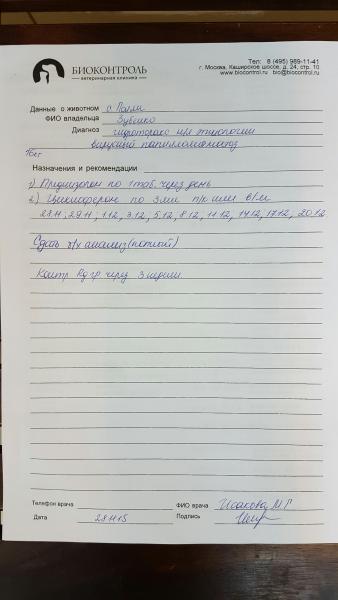 БИОКОНТРОЛЬ
ветеринарная клиника
Тел: 8 (495) 989-11-41
г. Москва, Каширское шоссе, д. 24, стр. 10
www.biocontrol.ru bio@biocontrol.ru
Данные о животном с. Полли
ФИО владельца Зубенко
Диагноз гидроторакс н/я этиологии
вирусный папилломатоз
16кг
Назначения и рекомендации
1) Преднизолон по 1 таб. через день
2) Циклоферон по 3мл п/к или в/м
28.11, 29.11, 1.12, 3.12, 5.12, 8.12, 11.12, 14.12, 17.12, 20.12
Сдать б/х анализ (полной)
Контр. Rg гр. через 3 недели.
Телефон врача
ФИО врача Исакова М.Г
Дата 28.11.15
Подпись